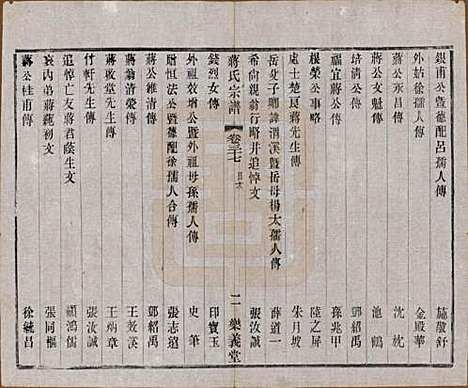 銀甫公暨德配呂孺人傳 施肇舒
外姑徐孺人傳 金殿華
蔣公永昌傳 沈枕
蔣公文魁傳 池鶴
培清公傳 鄧紹禹
福宜蔣公傳 孫兆甲
槐榮公事略 陸之屏
處士楚良蔣先生傳 朱月坡
岳父子卿諱渭溪暨岳母楊太孺人傳 薛道一
希向親翁行略并追悼文 張汝誠
蔣氏宗譜 卷三十七 目次 二 樂義堂
錢烈女傳 印寶玉
外祖效增公暨外祖母孫孺人傳 史筆
贈恒法公暨德配徐孺人合傳 張志超
蔣公維清傳 鄧紹禹
蔣翁清榮傳 王效溪
蔣啟堂先生傳 王炳章
竹軒先生傳 張汝誠
追悼亡友蔣君蔭生文 顧鴻儒
哀內弟蔣蕘初文 張同樞
蔣公桂甫傳 徐毓昌